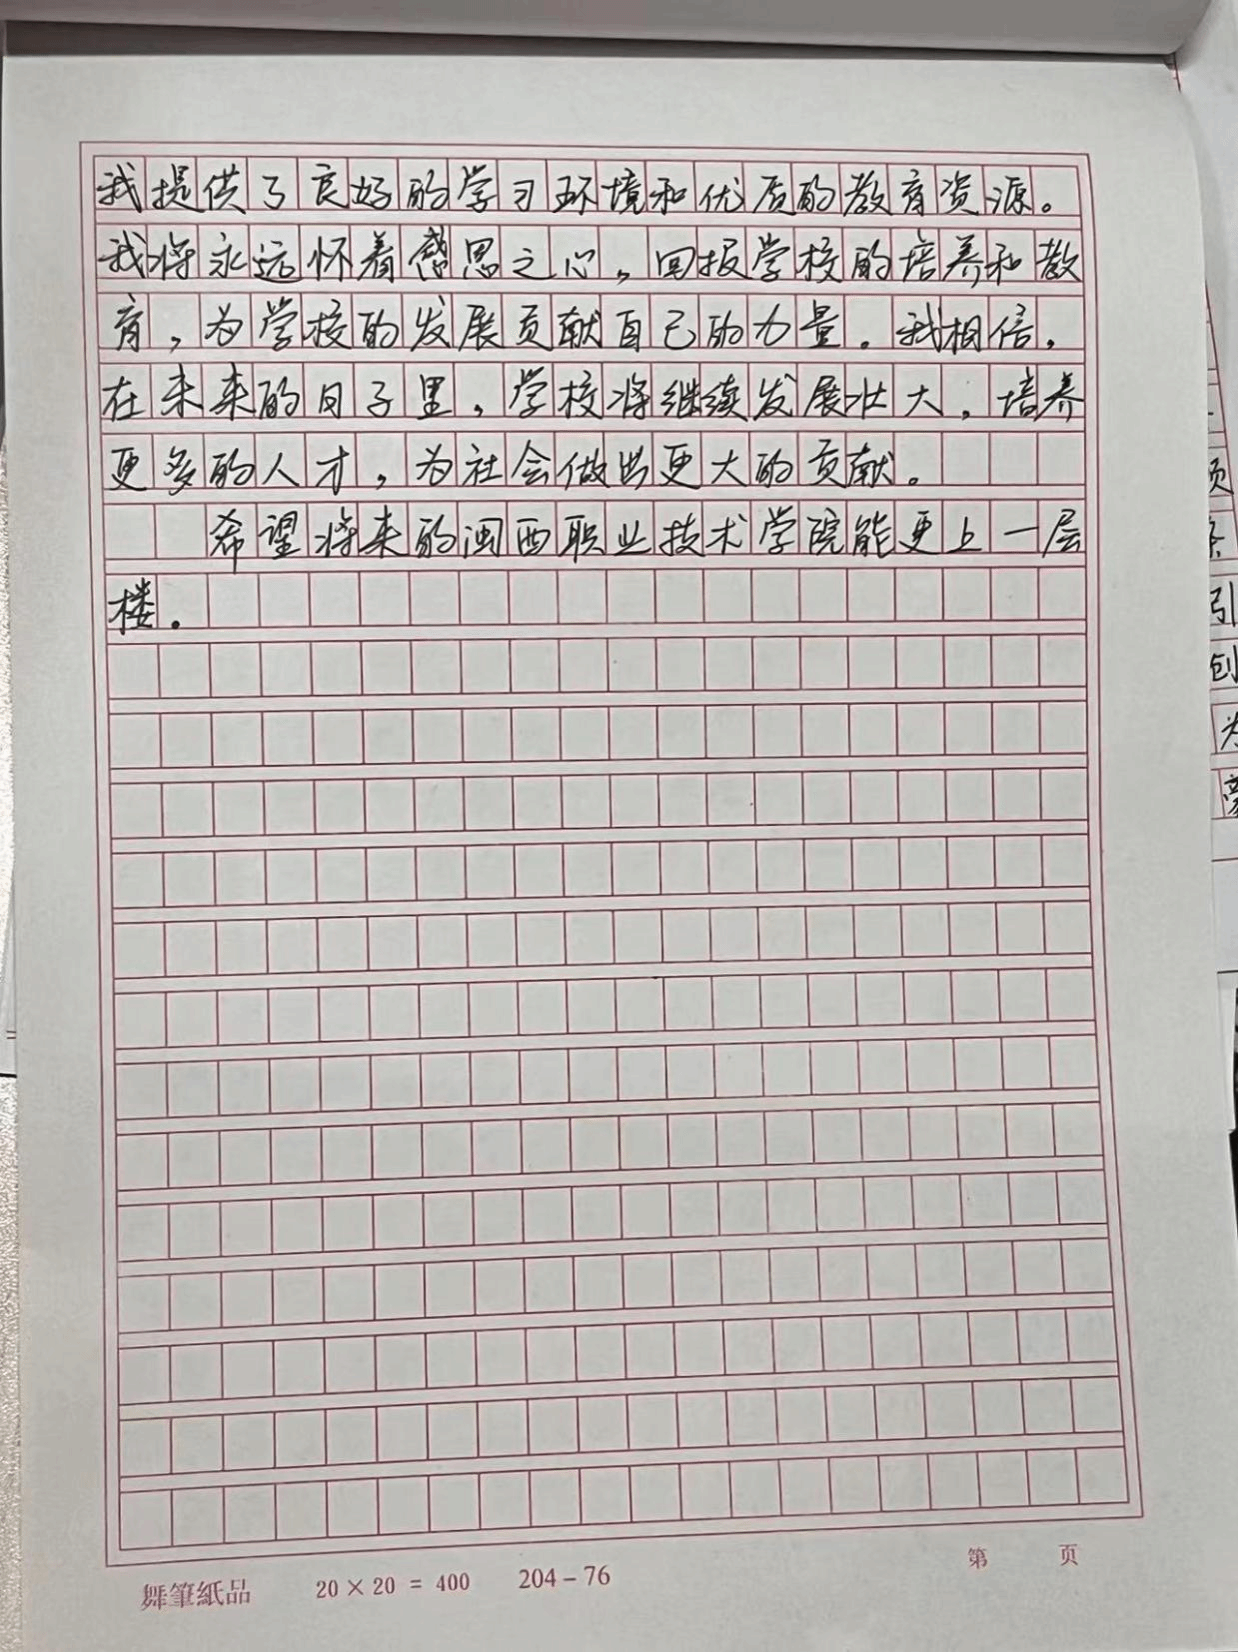 我提供了良好的学习环境和优质的教育资源。
我将永远怀着感恩之心，回报学校的培养和教
育，为学校的发展贡献自己的力量。我相信，
在未来的日子里，学校将继续发展壮大，培养
更多的人才，为社会做出更大的贡献。
希望将来的闽西职业技术学院能更上一层
楼。
引
创
为
舞筆紙品 20×20=400 204-76
第 页